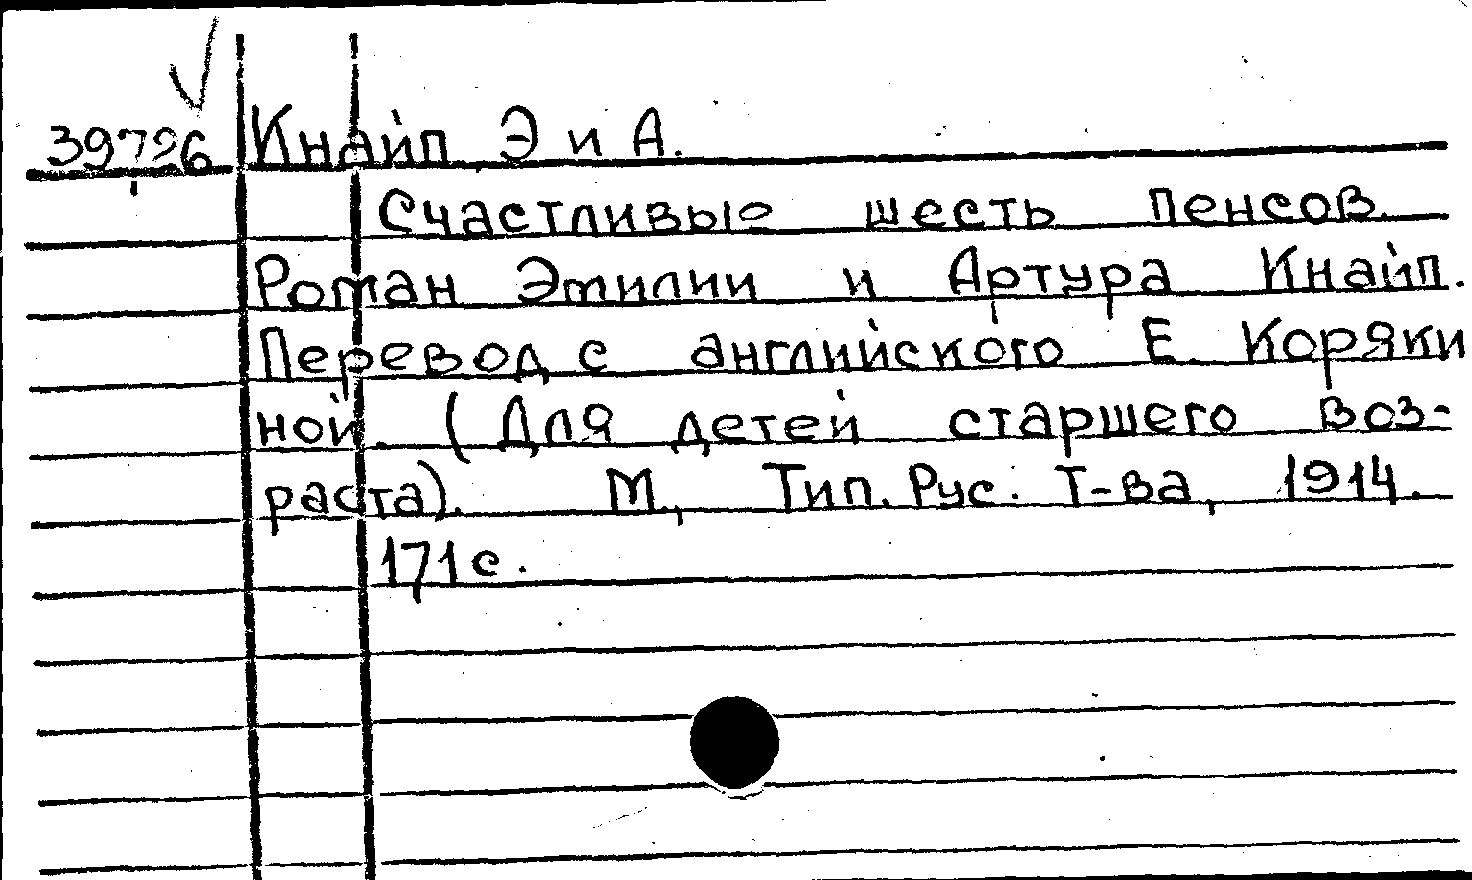 39726 Кнайп Э и А.
Счастливые шесть пенсов.
Роман Эмилии и Артура Кнайп.
Перевод с английского Е. Коряки
ной. (Для детей старшего воз-
раста). М., Тип. Рус. Т-ва, 1914.
171 с.